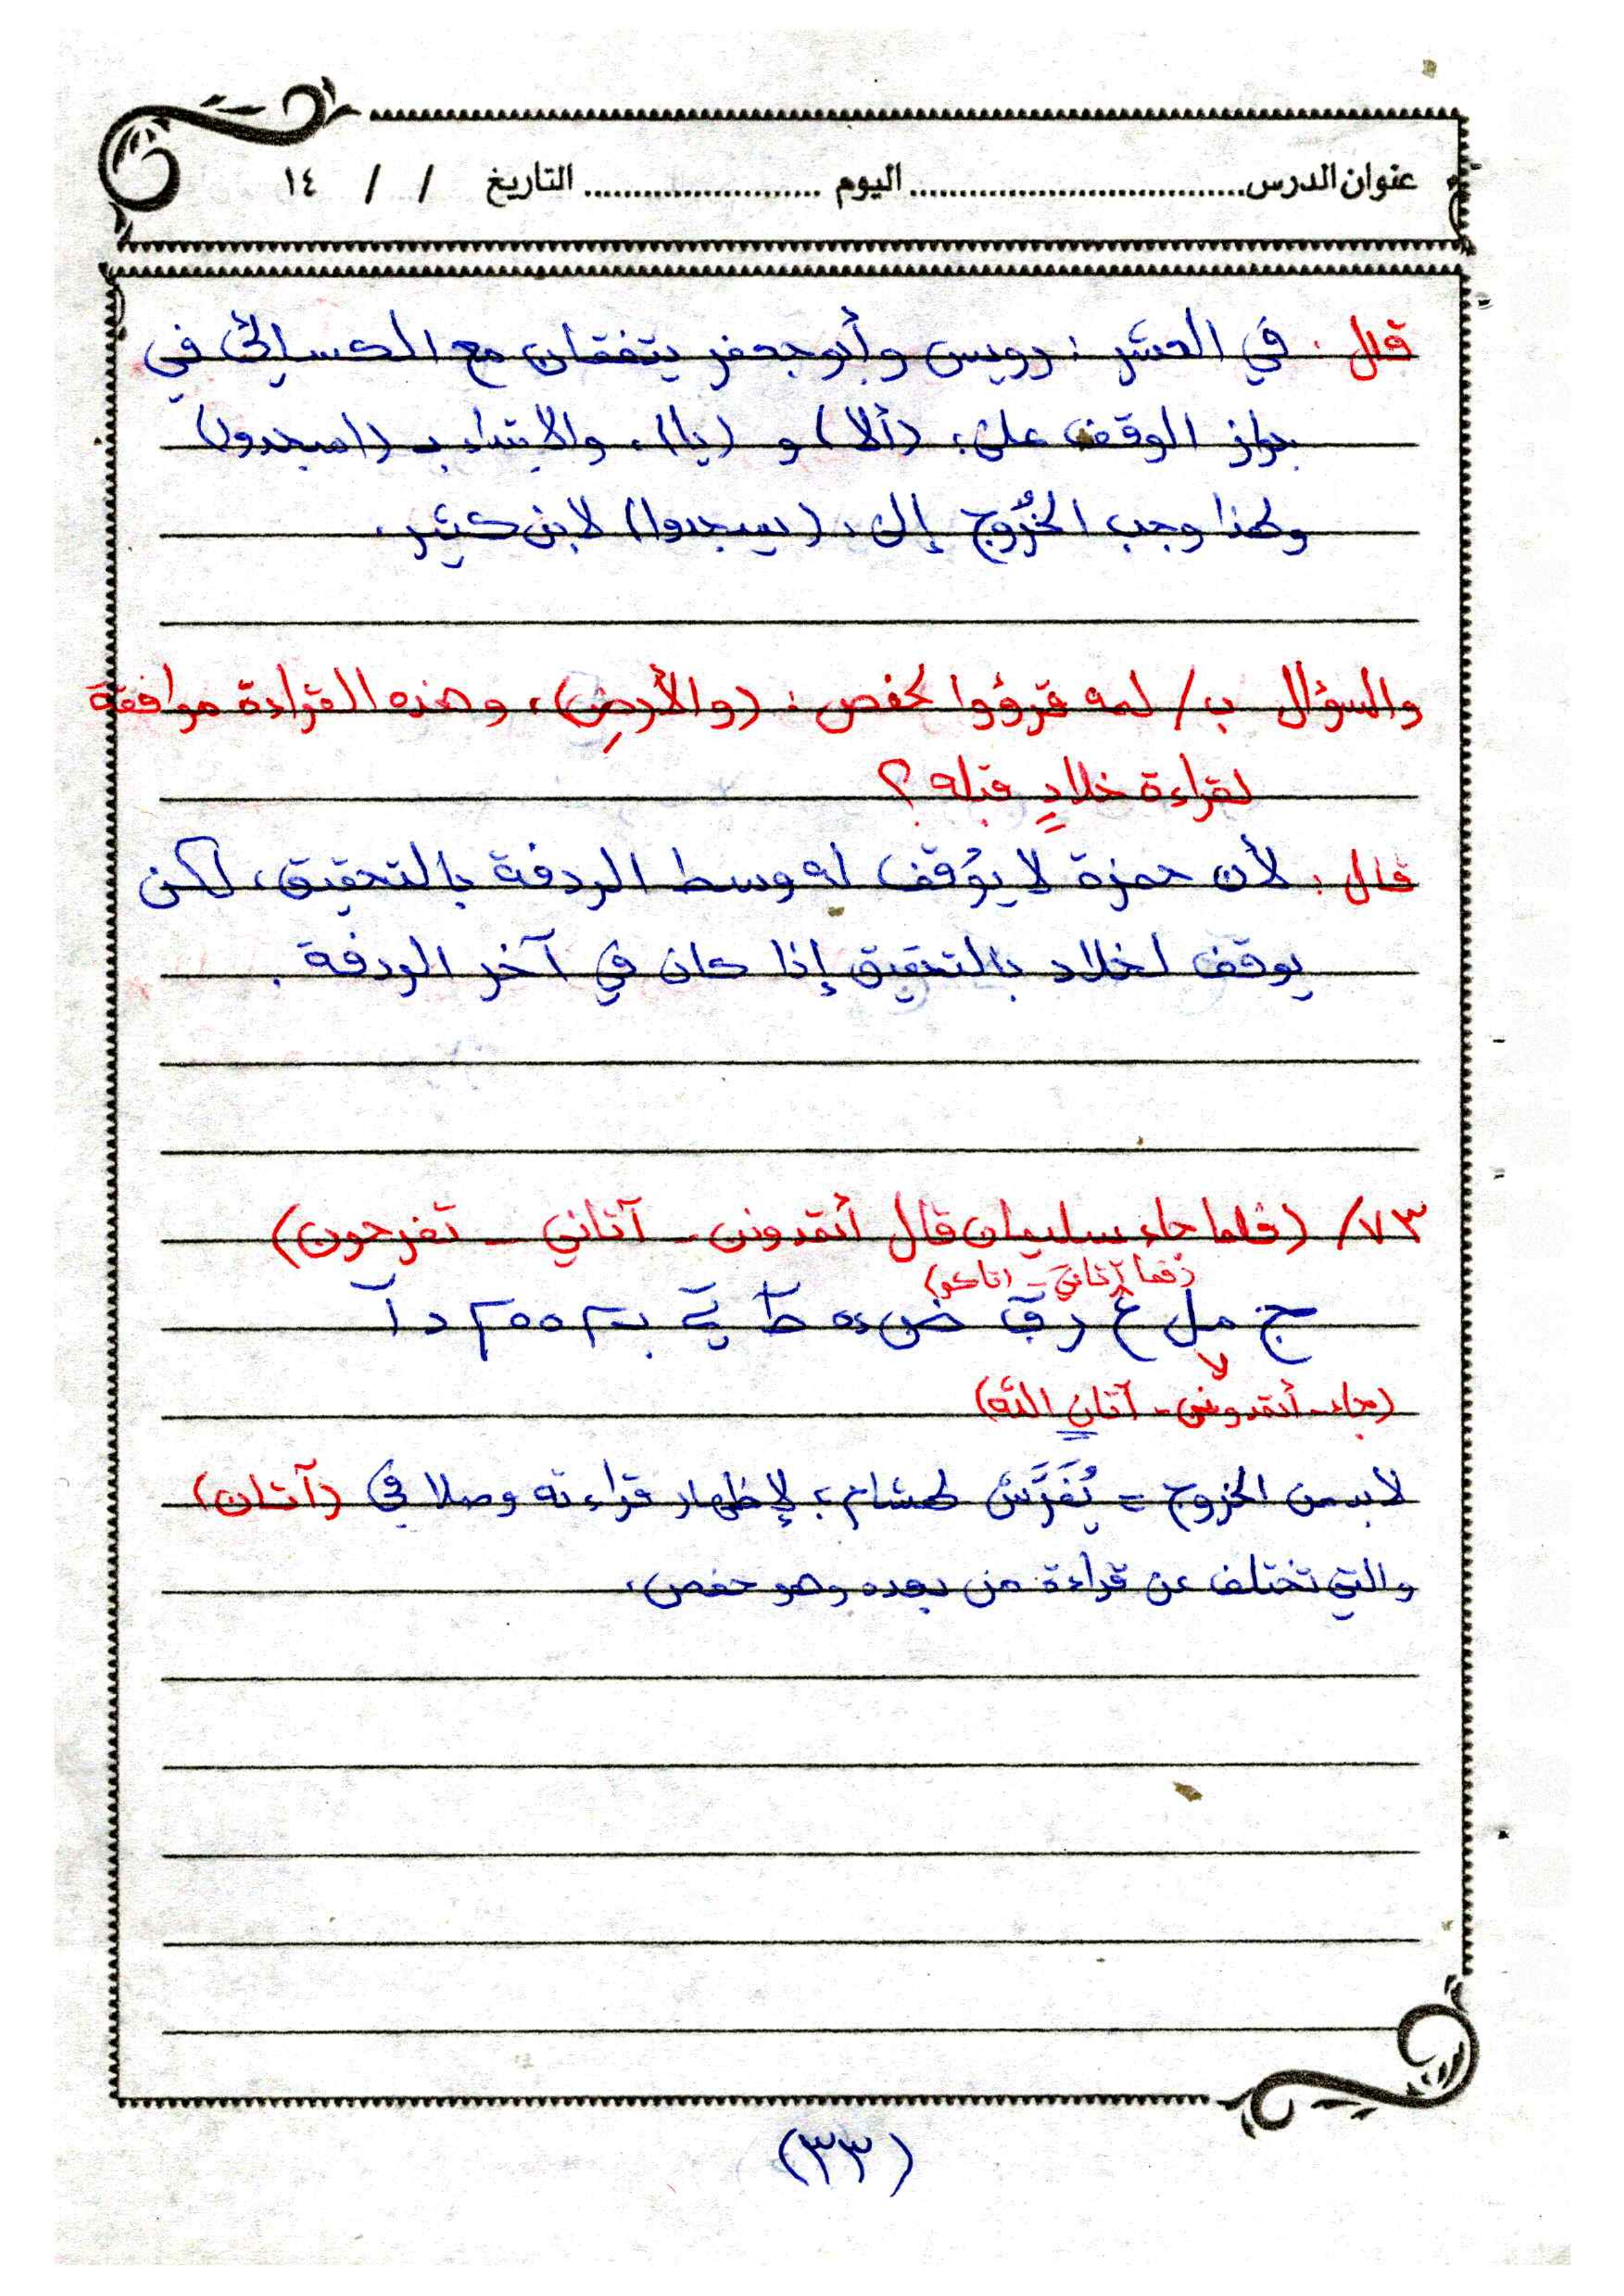 عنوان الدرس.................................اليوم ........................ التاريخ / / ١٤
قال : في العشر : رويس وأبو جعفر يتفقان مع الكسائي في
جواز الوقف على : (ألا) و (يا) ، والابتداء بـ (اسجدوا)
ولهذا وجب الخُرُوج إلى : (يسجدوا) لابن كثير .
والسؤال ب/ لمه قرؤوا لحفص : (والأرضِ) ، وهذه القراءة موافقة
لقراءة خلادٍ قبله ؟
قال : لأن حمزة لا يُوقف له وسط الردفة بالتحقيق ، لكن
يوقف لخلاد بالتحقيق إذا كان في آخر الردفة .
٧٣/ (فلما جاء سليمان قال أتمدونن - آتاني - تفرحون)
(فما آتاني - آتاكم)
ج مل ع رق ض
(جاء - أتمدونني - آتانِ اللّه)
لا بد من الخروج = يُفَرَّش لهشام ؛ لإظهار قراءته وصلا في (آتان)
والتي تختلف عن قراءة من بعده وهو حفص .
(٣٣)